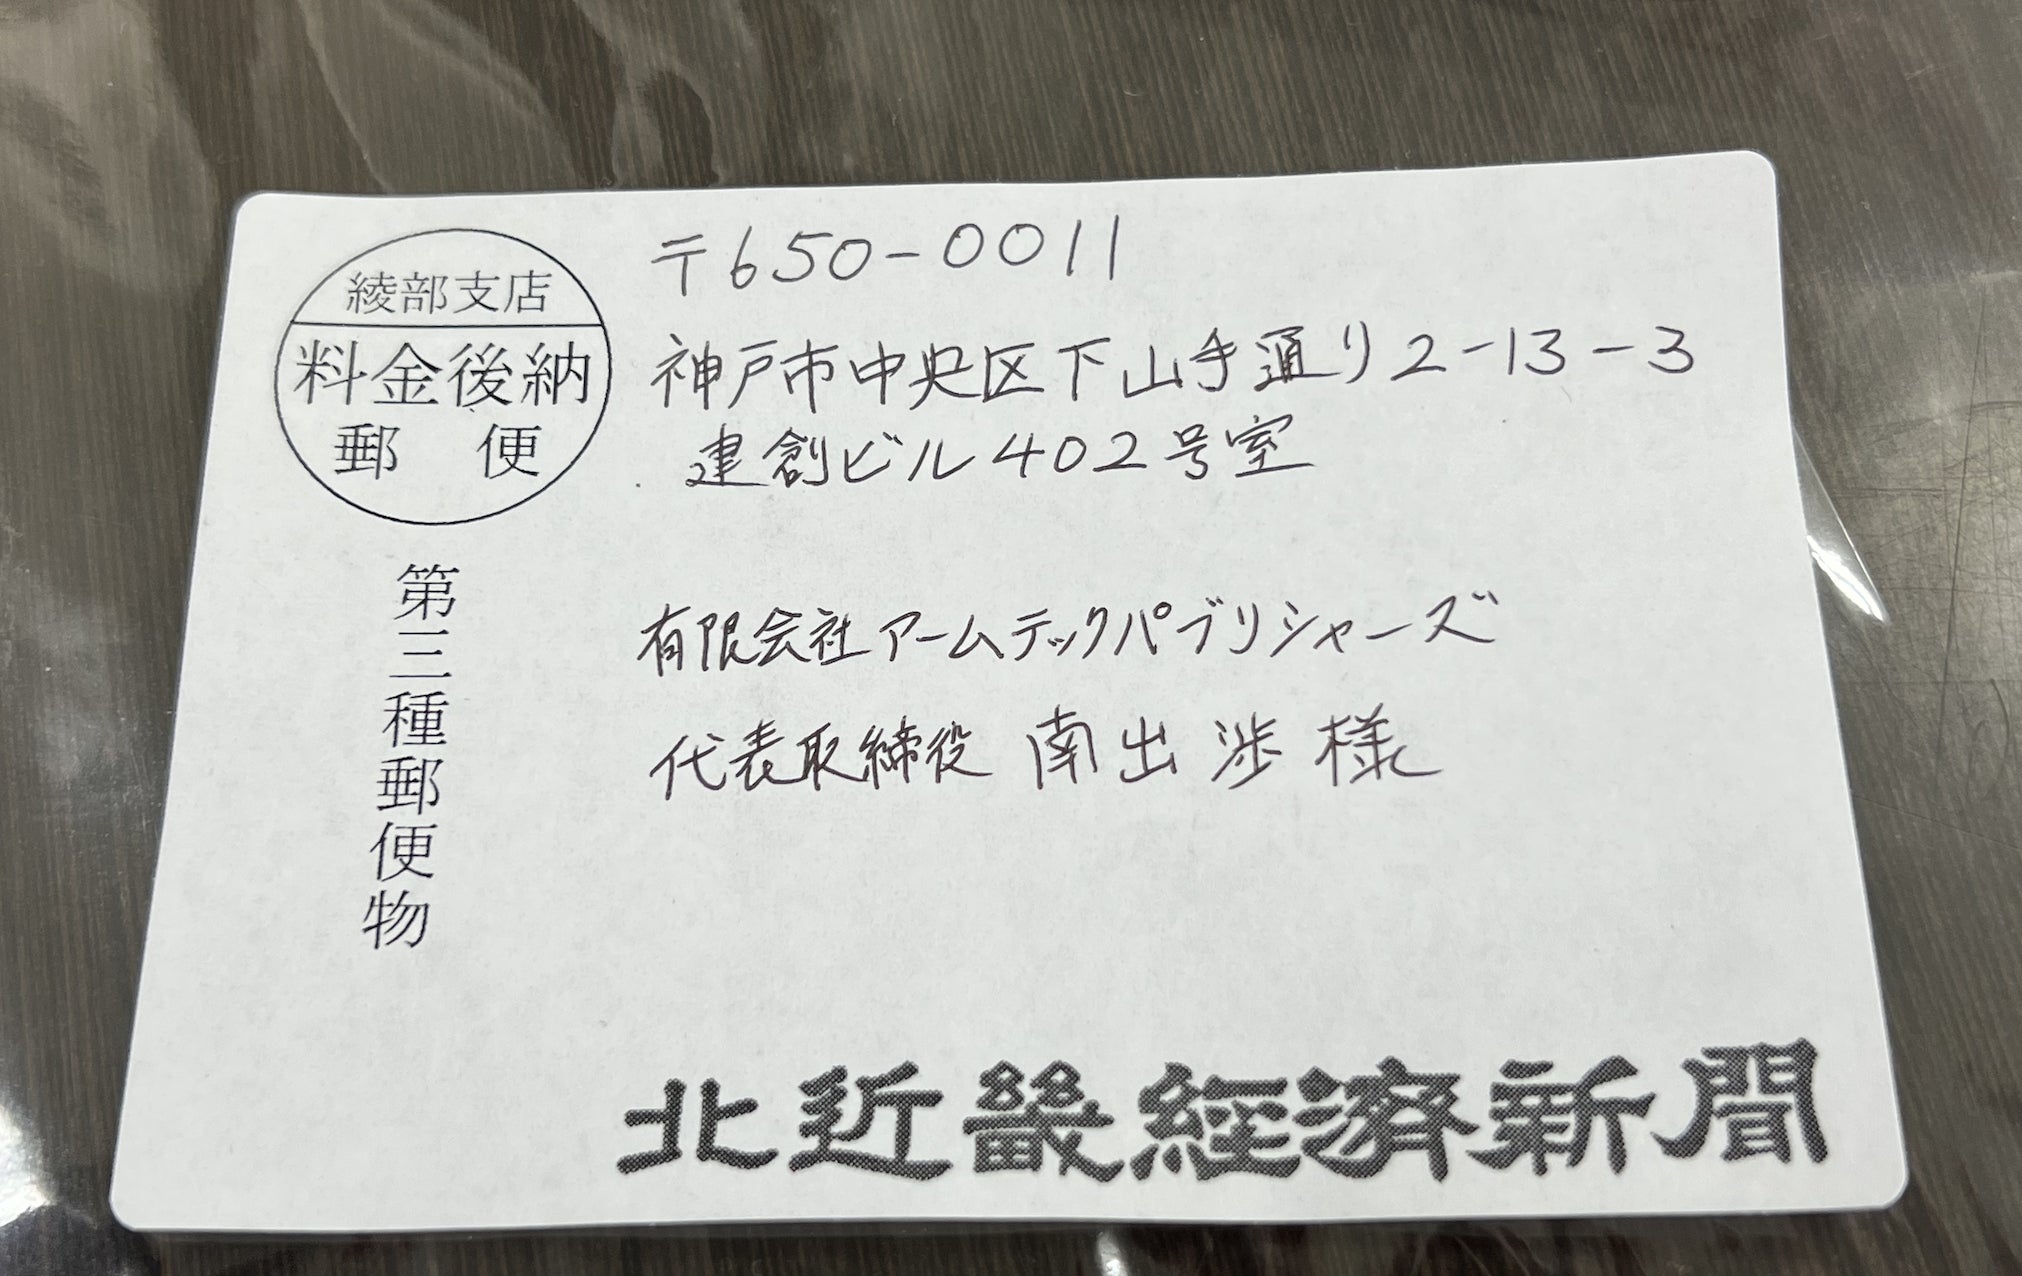 綾部支店
料金後納
郵便
第三種郵便物
〒650-0011
神戸市中央区下山手通り2-13-3
建創ビル402号室
有限会社アームテックパブリシャーズ
代表取締役 南出 渉 様
北近畿経済新聞